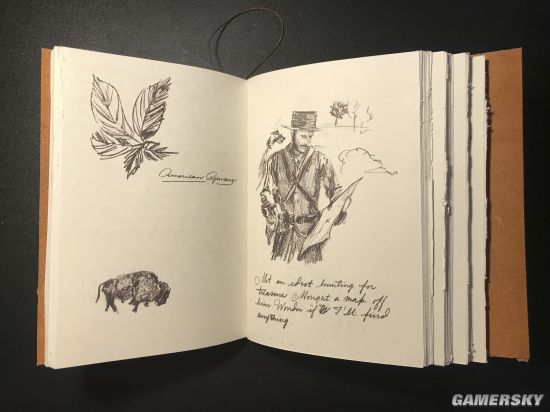 American Ginseng
Met an idiot hunting for
treasure. Bought a map off
him Wonder if I'll find
anything.
GAMERSKY